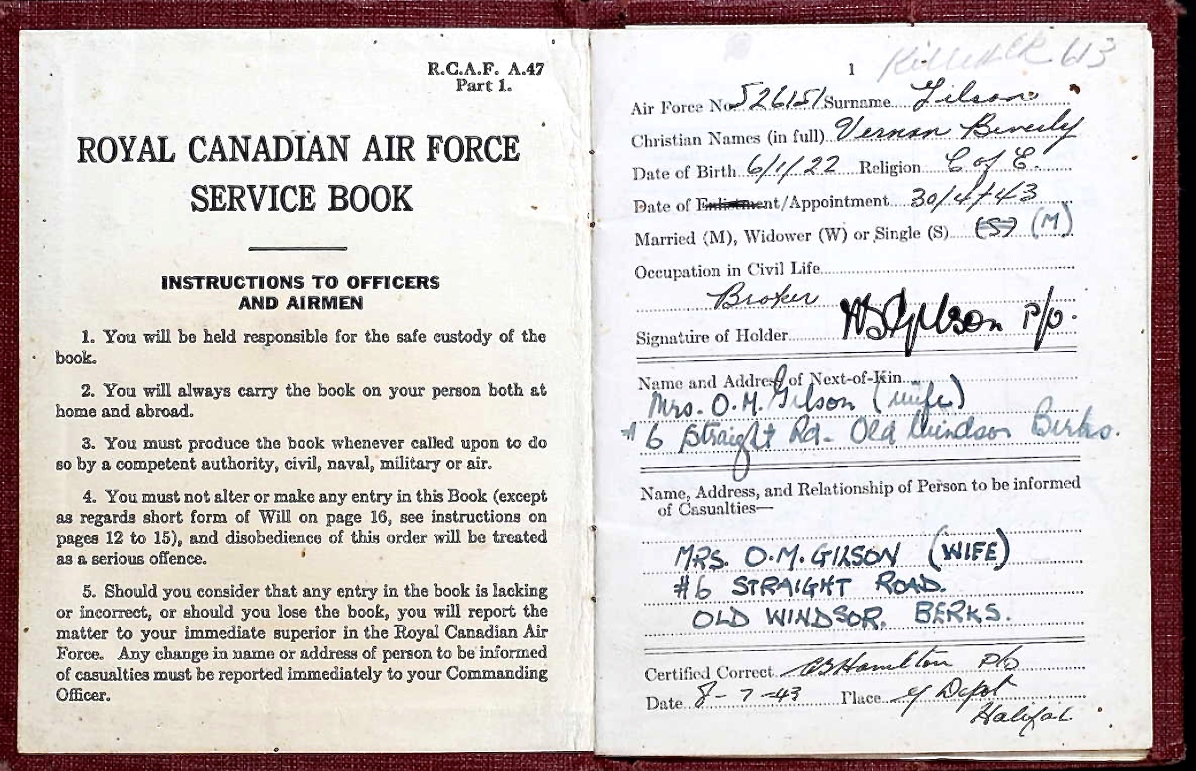 R.C.A.F. A.47
Part 1.
ROYAL CANADIAN AIR FORCE
SERVICE BOOK
INSTRUCTIONS TO OFFICERS
AND AIRMEN
1. You will be held responsible for the safe custody of the
book.
2. You will always carry the book on your person both at
home and abroad.
3. You must produce the book whenever called upon to do
so by a competent authority, civil, naval, military or air.
4. You must not alter or make any entry in this Book (except
as regards short form of Will on page 16, see instructions on
pages 12 to 15), and disobedience of this order will be treated
as a serious offence.
5. Should you consider that any entry in the book is lacking
or incorrect, or should you lose the book, you will report the
matter to your immediate superior in the Royal Canadian Air
Force. Any change in name or address of person to be informed
of casualties must be reported immediately to your Commanding
Officer.
1
613
Air Force No. J26151 Surname Gilson
Christian Names (in full) Vernon Beverly
Date of Birth 6/1/22 Religion C of E.
Date of Enlistment/Appointment 30/4/43
Married (M), Widower (W) or Single (S) (S) (M)
Occupation in Civil Life
Broker
Signature of Holder VB Gilson P/O.
Name and Address of Next-of-Kin
Mrs. O.M. Gilson (wife)
# 6 Straight Rd. Old Windsor Berks.
Name, Address, and Relationship of Person to be informed
of Casualties—
MRS. O.M. GILSON (WIFE)
#6 STRAIGHT ROAD
OLD WINDSOR, BERKS.
Certified Correct Hamilton P/O
Date 8-7-43 Place Y Depot
Halifax